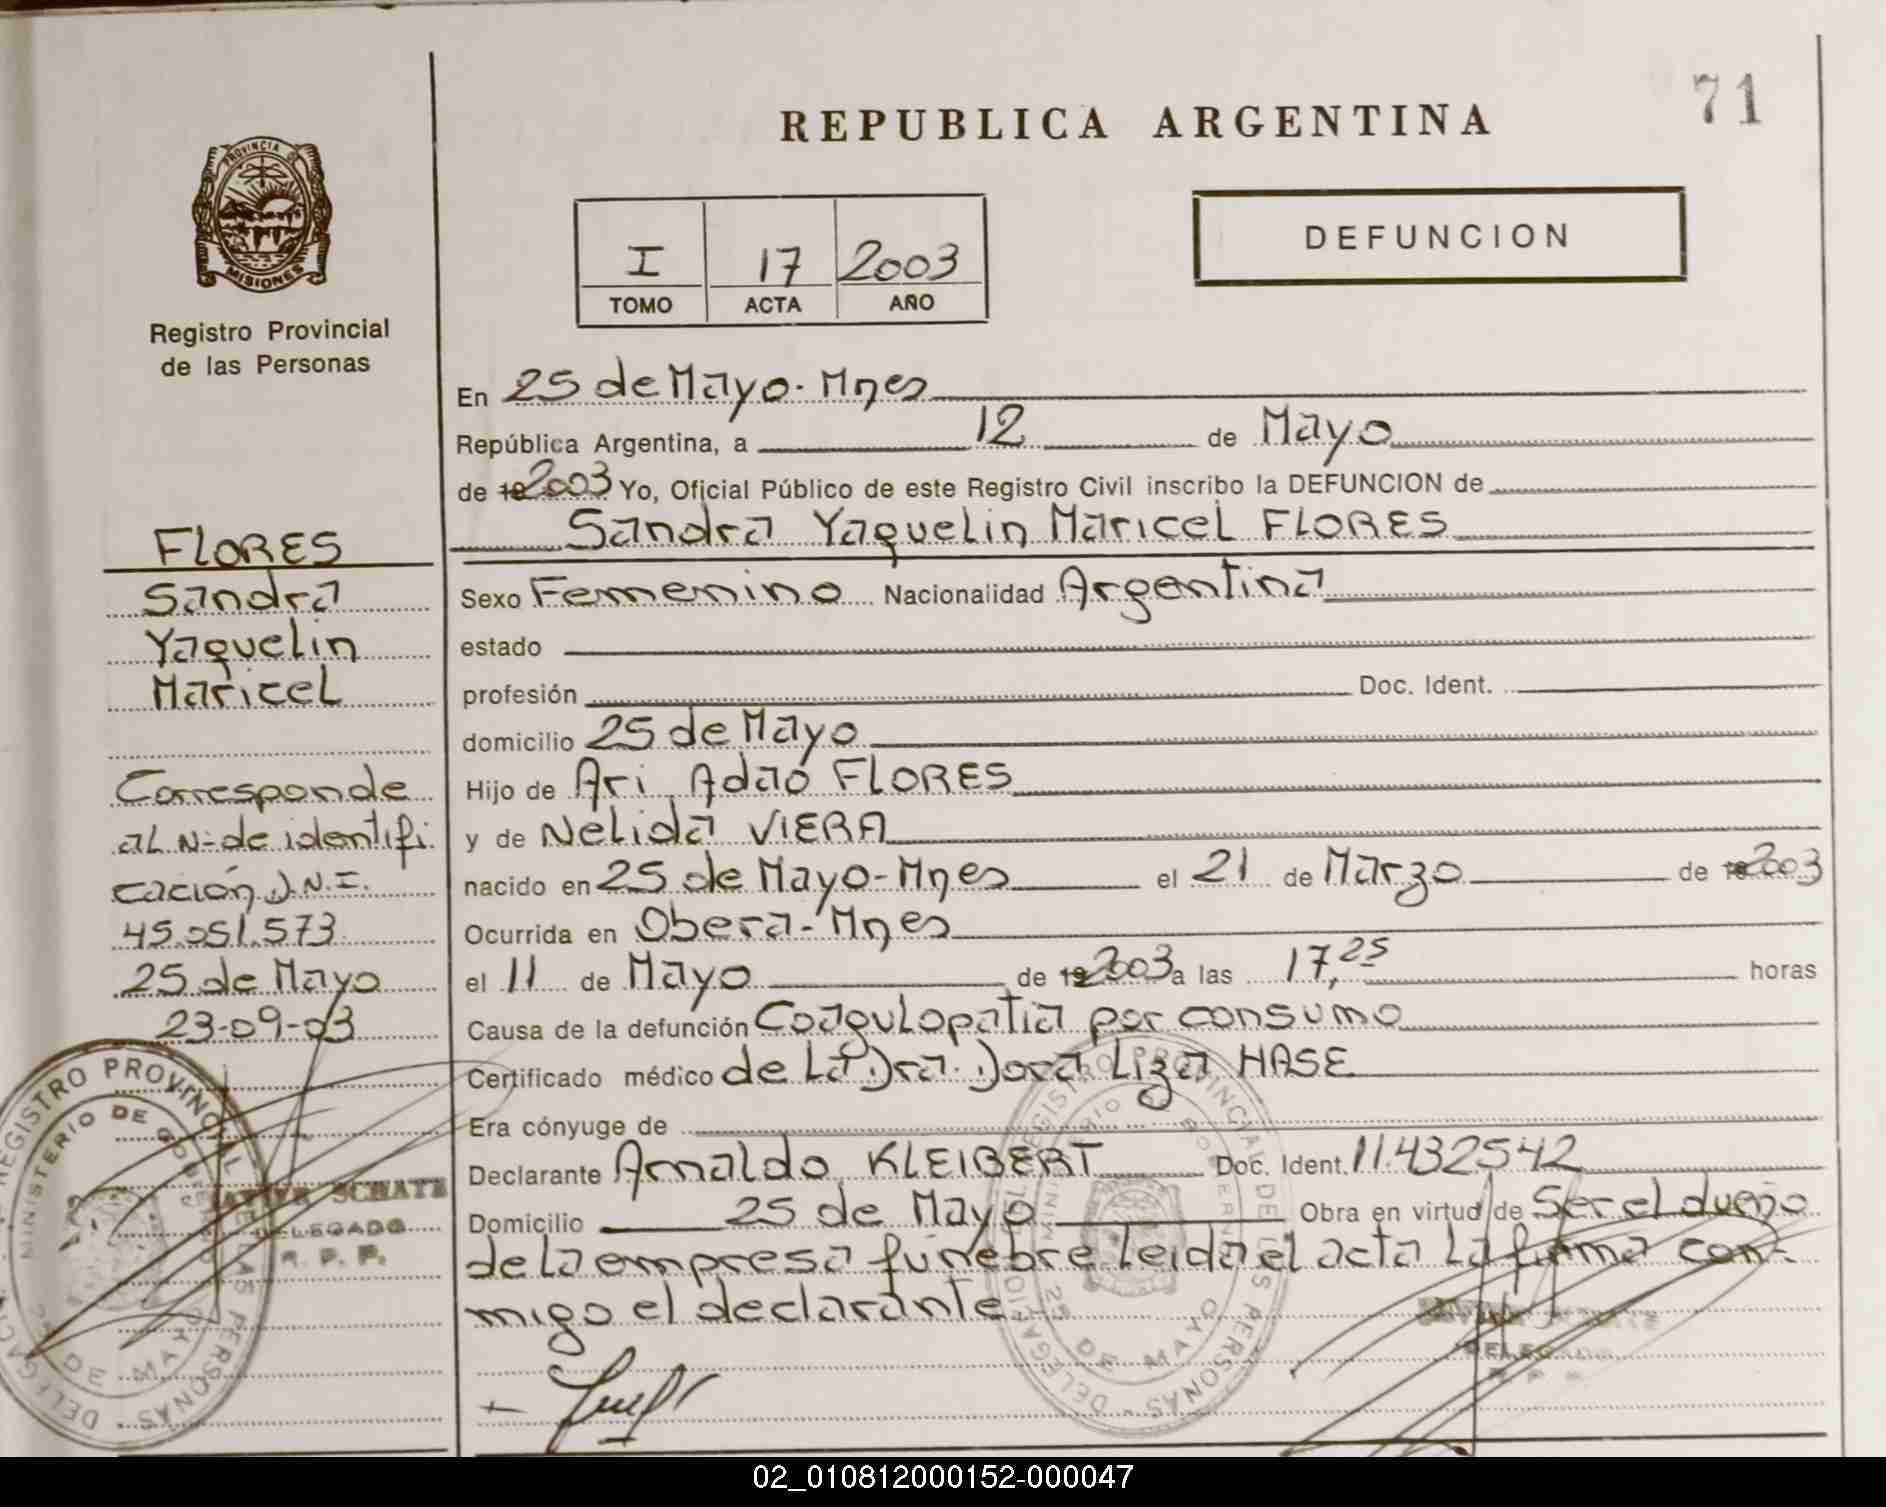 71
REPUBLICA ARGENTINA
PROVINCIA DE
MISIONES
Registro Provincial
de las Personas
I 17 2003
TOMO ACTA AÑO
DEFUNCION
En 25 de Mayo - Mnes
República Argentina, a 12 de Mayo
de 19 2003 Yo, Oficial Público de este Registro Civil inscribo la DEFUNCION de
Sandra Yaquelin Maricel FLORES
Sexo Femenino Nacionalidad Argentina
estado
profesión Doc. Ident.
domicilio 25 de Mayo
Hijo de Ari Adao FLORES
y de Nelida VIERA
nacido en 25 de Mayo - Mnes el 21 de Marzo de 19 2003
Ocurrida en Obera - Mnes
el 11 de Mayo de 19 2003 a las 17,25 horas
Causa de la defunción Coagulopatia por consumo
Certificado médico de La Dra. Dora Liza HASE
Era cónyuge de
Declarante Arnaldo KLEIBERT Doc. Ident. 11.432542
Domicilio 25 de Mayo Obra en virtud de Ser el dueño
de la empresa fúnebre leida el acta La firma con-
migo el declarante
FLORES
Sandra
Yaquelin
Maricel
Corresponde
al N- de identifi
cación D.N.I.
45.051.573
25 de Mayo
23-09-03
REGISTRO PROVINCIAL DE LAS PERSONAS - DELEGACION
MINISTERIO DE GOBIERNO
25 DE MAYO
SCHATZ
DELEGADO
R. P. P.
REGISTRO PROVINCIAL DE LAS PERSONAS - DELEGACION
MINISTERIO DE GOBIERNO
25 DE MAYO
DELEGADO
02_010812000152-000047